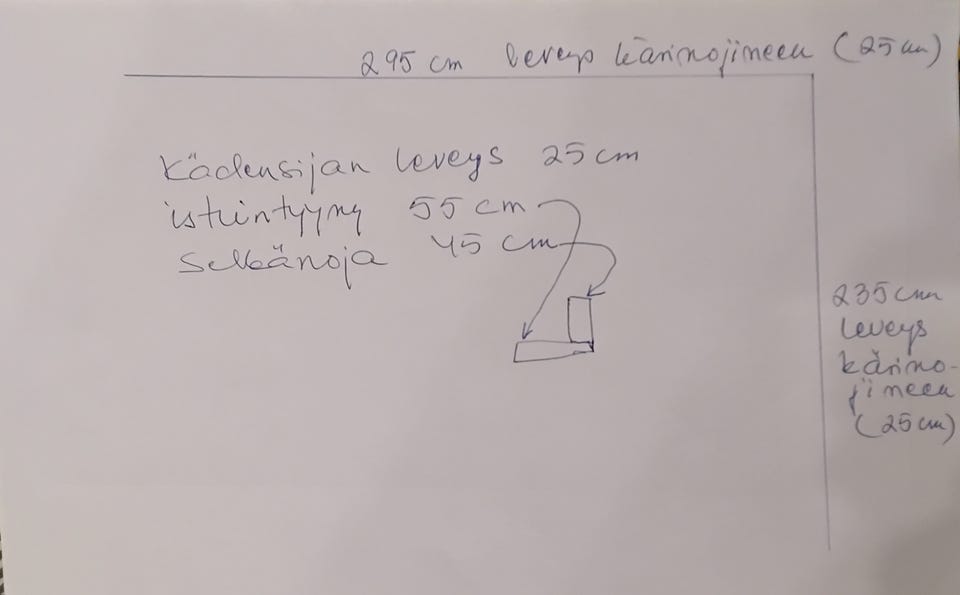 295 cm leveys käsinojineen (25 cm)
Kädensijan leveys 25 cm
istuintyyny 55 cm
Selkänoja 45 cm
235 cm
leveys
käsino-
jineen
(25 cm)